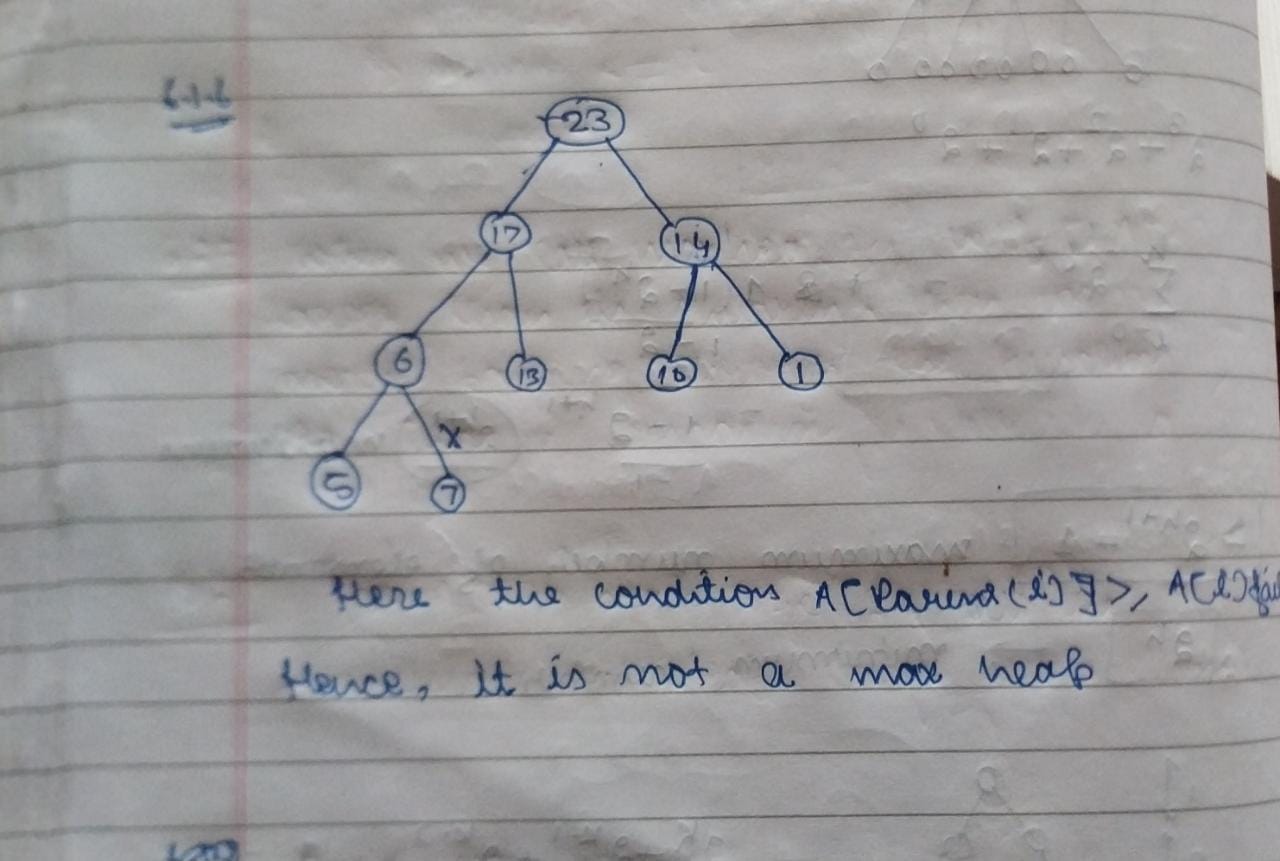 6.1.6
23
17 14
6 13 10 1
x
5 7
Here the condition A[Parent(i)] >, A[i] fai
Hence, it is not a max heap